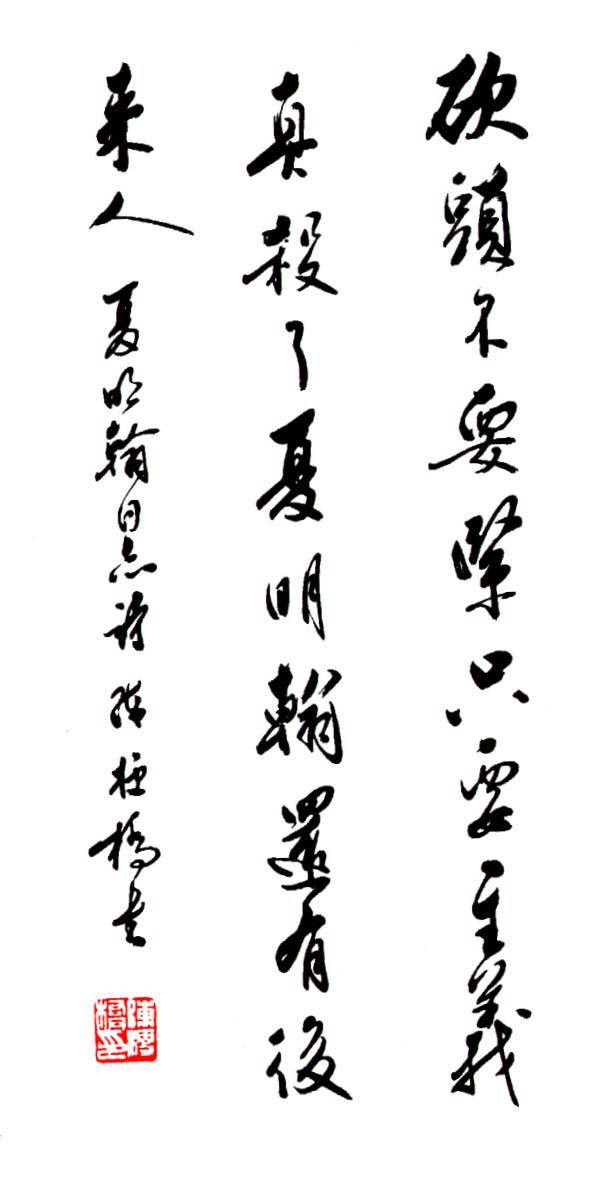 砍頭不要緊只要主義
真殺了夏明翰還有後
来人
夏明翰同志詩 陳極橋書